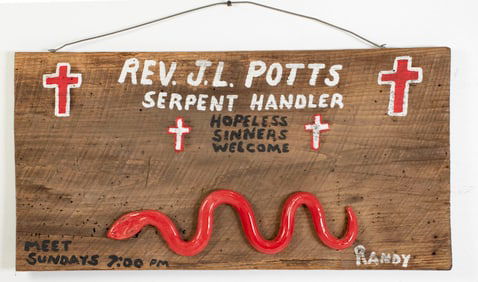 REV. J.L. POTTS
SERPENT HANDLER
HOPELESS
SINNERS
WELCOME
MEET
SUNDAYS 7:00 PM
RANDY